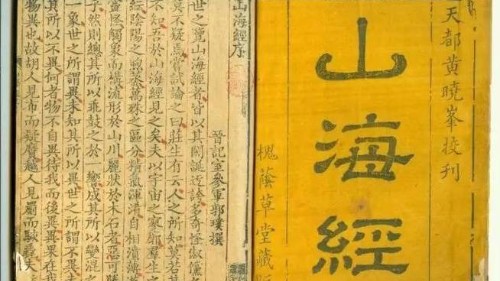 天都黃曉峯挍刊
山海經
槐蔭草堂藏
山海經序
晉記室參軍郭璞撰
世之覽山海經者皆以其閎誕迂誇多奇怪俶儻
莫不疑焉嘗試論之曰莊生有云人之所知莫若其
不知吾於山海經見之矣夫以宇宙之寥廓群生之
紜陰陽之煦蒸萬殊之區分精氣渾淆自相濆薄
靈怪觸象而構流形於山川麗狀於木石者惡可勝
乎然則總其所以乖鼓之於一響成其所以變混之
一象世之所謂異未知其所以異世之所謂不異未
其所以不異何者物不自異待我而後異
物異也故胡人見布而疑黂越人見罽而駭